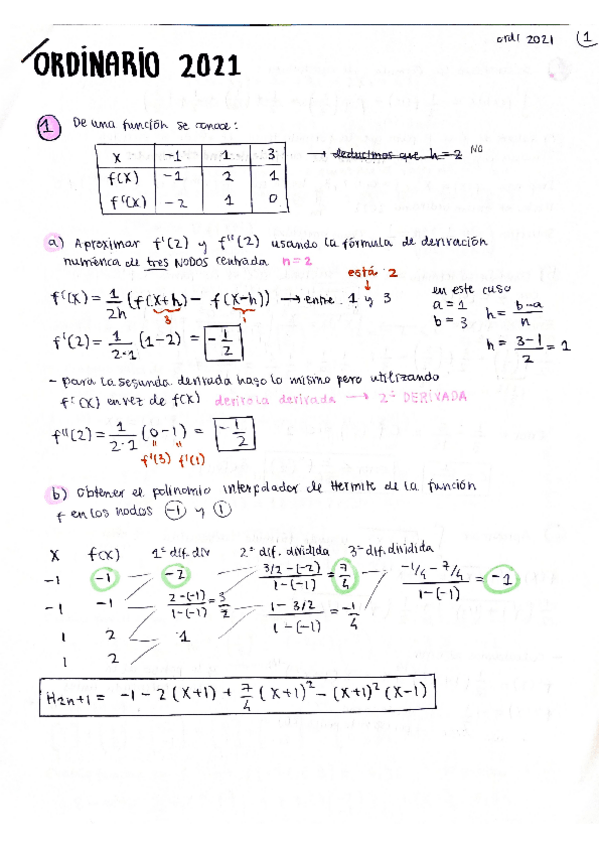 ordi 2021 1
ORDINARIO 2021
1 De una función se conoce:
x -1 1 3 → deducimos que h = 2 NO
f(x) -1 2 1
f'(x) -2 1 0
a) Aproximar f'(2) y f''(2) usando la fórmula de derivación
numérica de tres NODOS centrada n=2
está 2
f'(x) = 1/2h (f(x+h) - f(x-h)) → entre 1 y 3
3 1
en este caso
a = 1
b = 3
h = b-a/n
h = 3-1/2 = 1
f'(2) = 1/2·1 (1-2) = -1/2
- para la segunda derivada hago lo mismo pero utilizando
f'(x) en vez de f(x) derivo la derivada → 2ª DERIVADA
f''(2) = 1/2·1 (0-1) = -1/2
f'(3) f'(1)
b) Obtener el polinomio interpolador de Hermite de la función
f en los nodos -1 y 1
x f(x) 1ª dif. div 2ª dif. dividida 3ª dif. dividida
-1 -1 -2 3/2-(-2)/1-(-1) = 7/4 -1/4-7/4/1-(-1) = -1
-1 -1 2-(-1)/1-(-1) = 3/2 1-3/2/1-(-1) = -1/4
1 2 1
1 2
H2n+1 = -1-2(x+1) + 7/4 (x+1)² - (x+1)² (x-1)